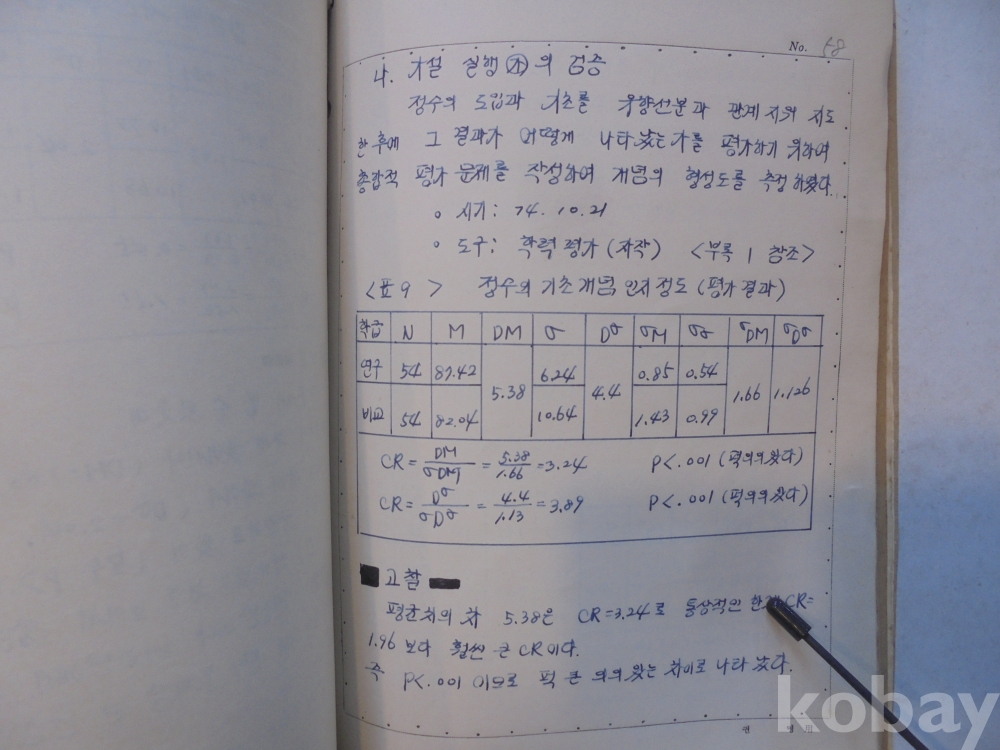 No. 58
나. 가설 실행㉮의 검증
정수의 도입과 기초를 유향선분과 관계 지워 지도
한 후에 그 결과가 어떻게 나타났는가를 평가하기 위하여
총합적 평가 문제를 작성하여 개념의 형성도를 측정 하였다.
o 시기: 74. 10. 21
o 도구: 학력 평가 (자작) <부록 1 참조>
<표 9 > 정수의 기초개념 인지 정도 (평가 결과)
학급 N M DM σ Dσ σM σσ σDM σDσ
연구 54 87.42 5.38 6.24 4.4 0.85 0.54 1.66 1.126
비교 54 82.04 10.64 1.43 0.99
CR = DM/σDM = 5.38/1.66 = 3.24 P<.001 (퍽의의있다)
CR = Dσ/σDσ = 4.4/1.13 = 3.89 P<.001 (퍽의의있다)
고찰
평균치의 차 5.38은 CR=3.24로 통상적인 CR=
1.96 보다 훨씬 큰 CR이다.
즉 P<.001 이므로 퍽 큰 의의 있는 차이로 나타 났다.
kobay